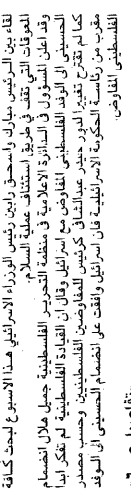 لقاء بين الرئيس مبارك واسحق رابين رئيس الوزراء الاسرائيلي هذا الاسبوع لبحث كافة
المعوقات التي تقف في طريق استئناف عملية السلام.
وقد أعلن المسؤول في الدائرة الاعلامية في منظمة التحرير الفلسطينية جميل هلال انضمام
الحسيني الى الوفد الفلسطيني المفاوض مع اسرائيل وقال ان القيادة الفلسطينية لم تفكر ابدا
كما لم تقترح تغييرا لدور حيدر عبدالشافي كرئيس للمفاوضين الفلسطينيين وحسب مصدر
مقرب من رئاسة الحكومة الاسرائيلية فان اسرائيل وافقت على انضمام الحسيني الى الوفد
الفلسطيني المفاوض.